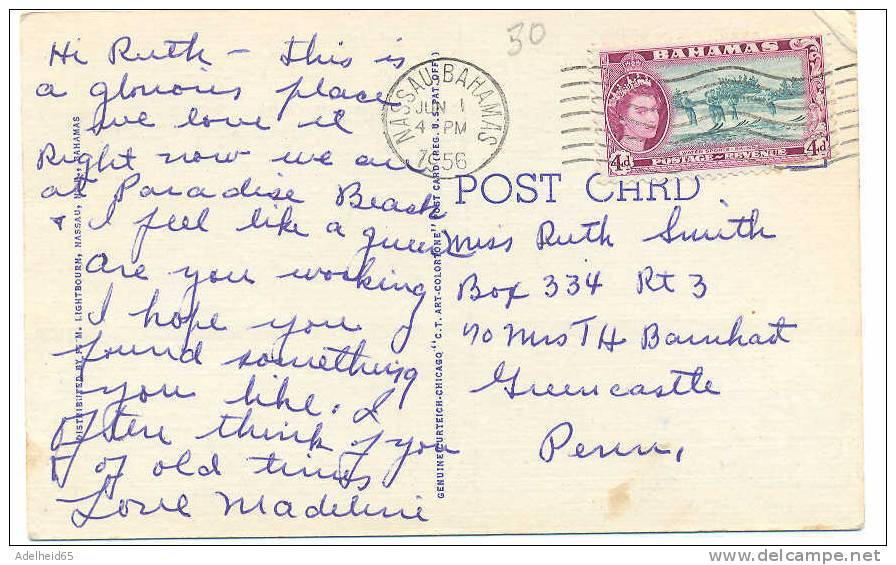 Hi Ruth - this is
a glorious place
we love it
Right now we are
at Paradise Beach
+ I feel like a queen
are you working
I hope you
found something
you like. I
often think of you
+ of old times
Love Madeline
DISTRIBUTED BY LIGHTBOURN, NASSAU, BAHAMAS
GENUINE CURTEICH-CHICAGO "C.T. ART-COLORTONE" POST CARD (REG. U.S. PAT. OFF.)
50
NASSAU BAHAMAS
JUN 1
4 PM
1956
BAHAMAS
4d
POSTAGE REVENUE
4d
POST CARD
Miss Ruth Smith
Box 334 Rt 3
c/o Mrs T H Barnhart
Greencastle
Penn.
Adelheid65
delcampe.net